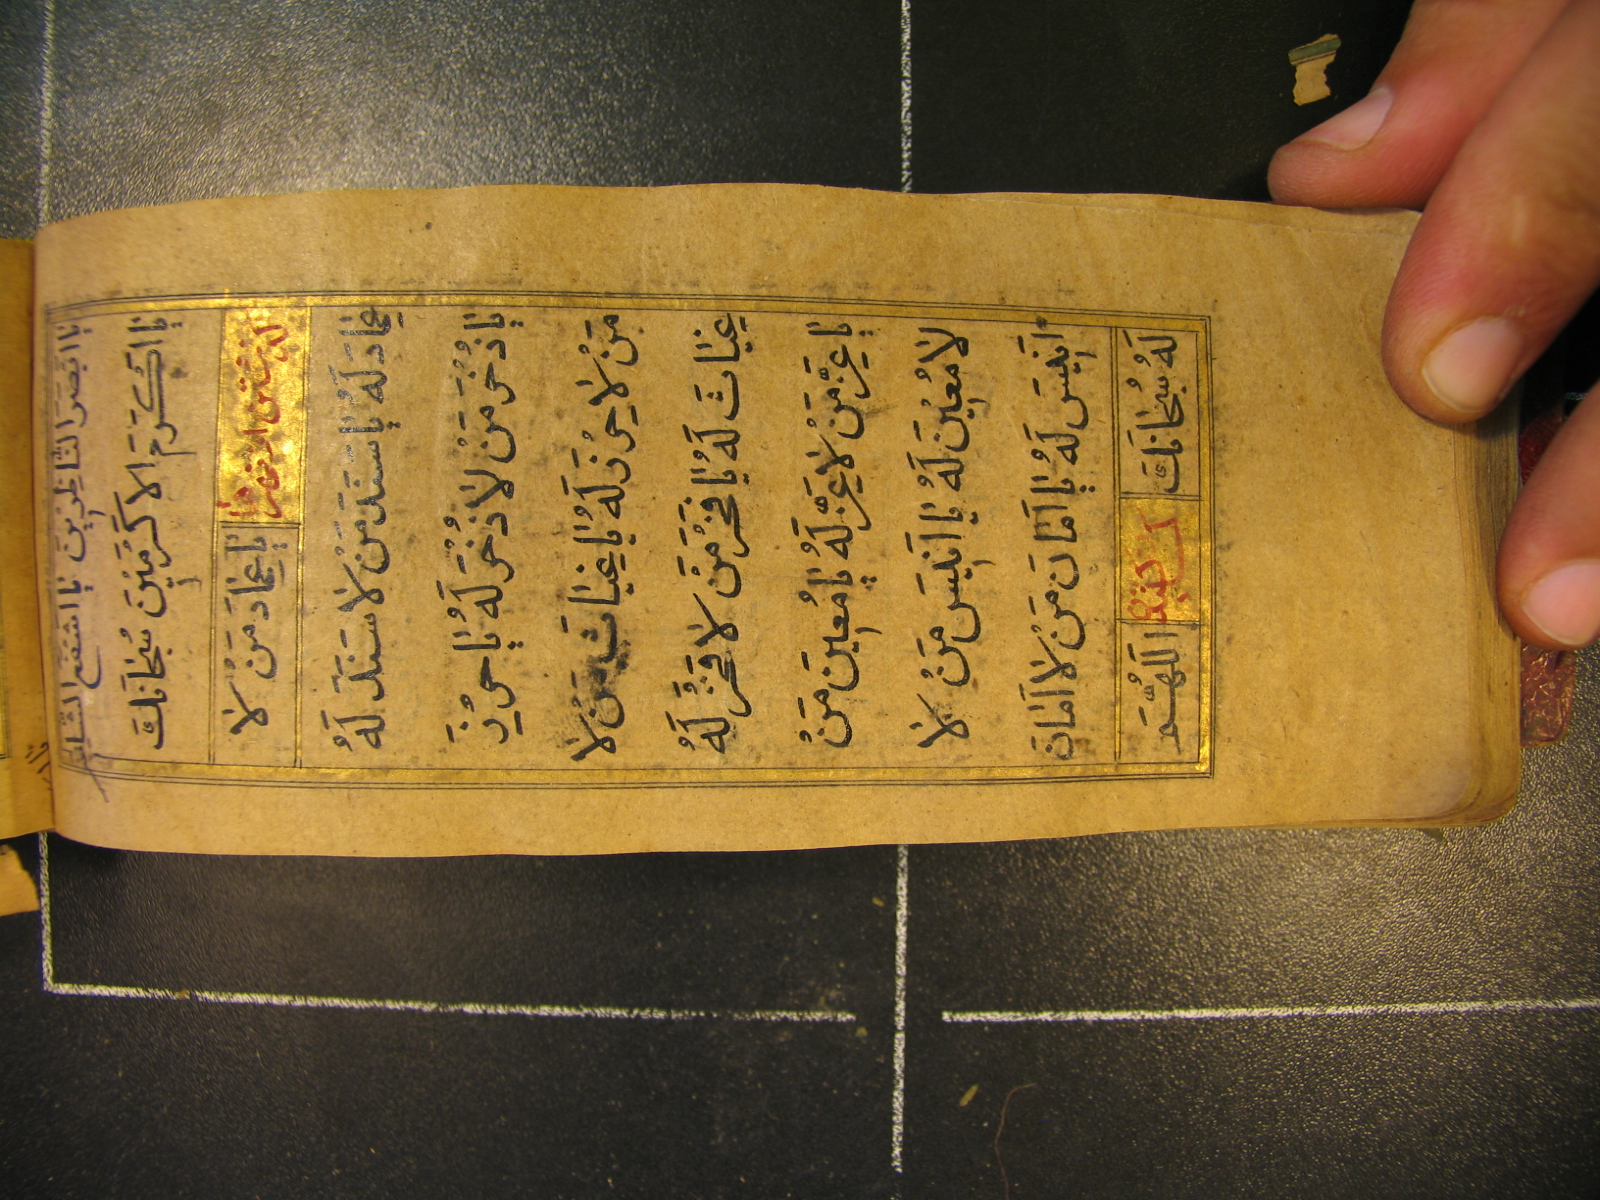 يَا اَبْصَرَ النَّاظِرِينَ يَا اَشْفَعَ الشَّافِعِينَ
يَا اَكْرَمَ الْاَكْرَمِينَ سُبْحَانَكَ
يَا عِمَادَ مَنْ لَا
عِمَادَ لَهُ يَا سَنَدَ مَنْ لَا سَنَدَ لَهُ
يَا ذُخْرَ مَنْ لَا ذُخْرَ لَهُ يَا حِرْزَ
مَنْ لَا حِرْزَ لَهُ يَا غِيَاثَ مَنْ لَا
غِيَاثَ لَهُ يَا فَخْرَ مَنْ لَا فَخْرَ لَهُ
يَا عِزَّ مَنْ لَا عِزَّ لَهُ يَا مُعِينَ مَنْ
لَا مُعِينَ لَهُ يَا اَنِيسَ مَنْ لَا
اَنِيسَ لَهُ يَا اَمَانَ مَنْ لَا اَمَانَ
لَهُ سُبْحَانَكَ اَللّٰهُمَّ